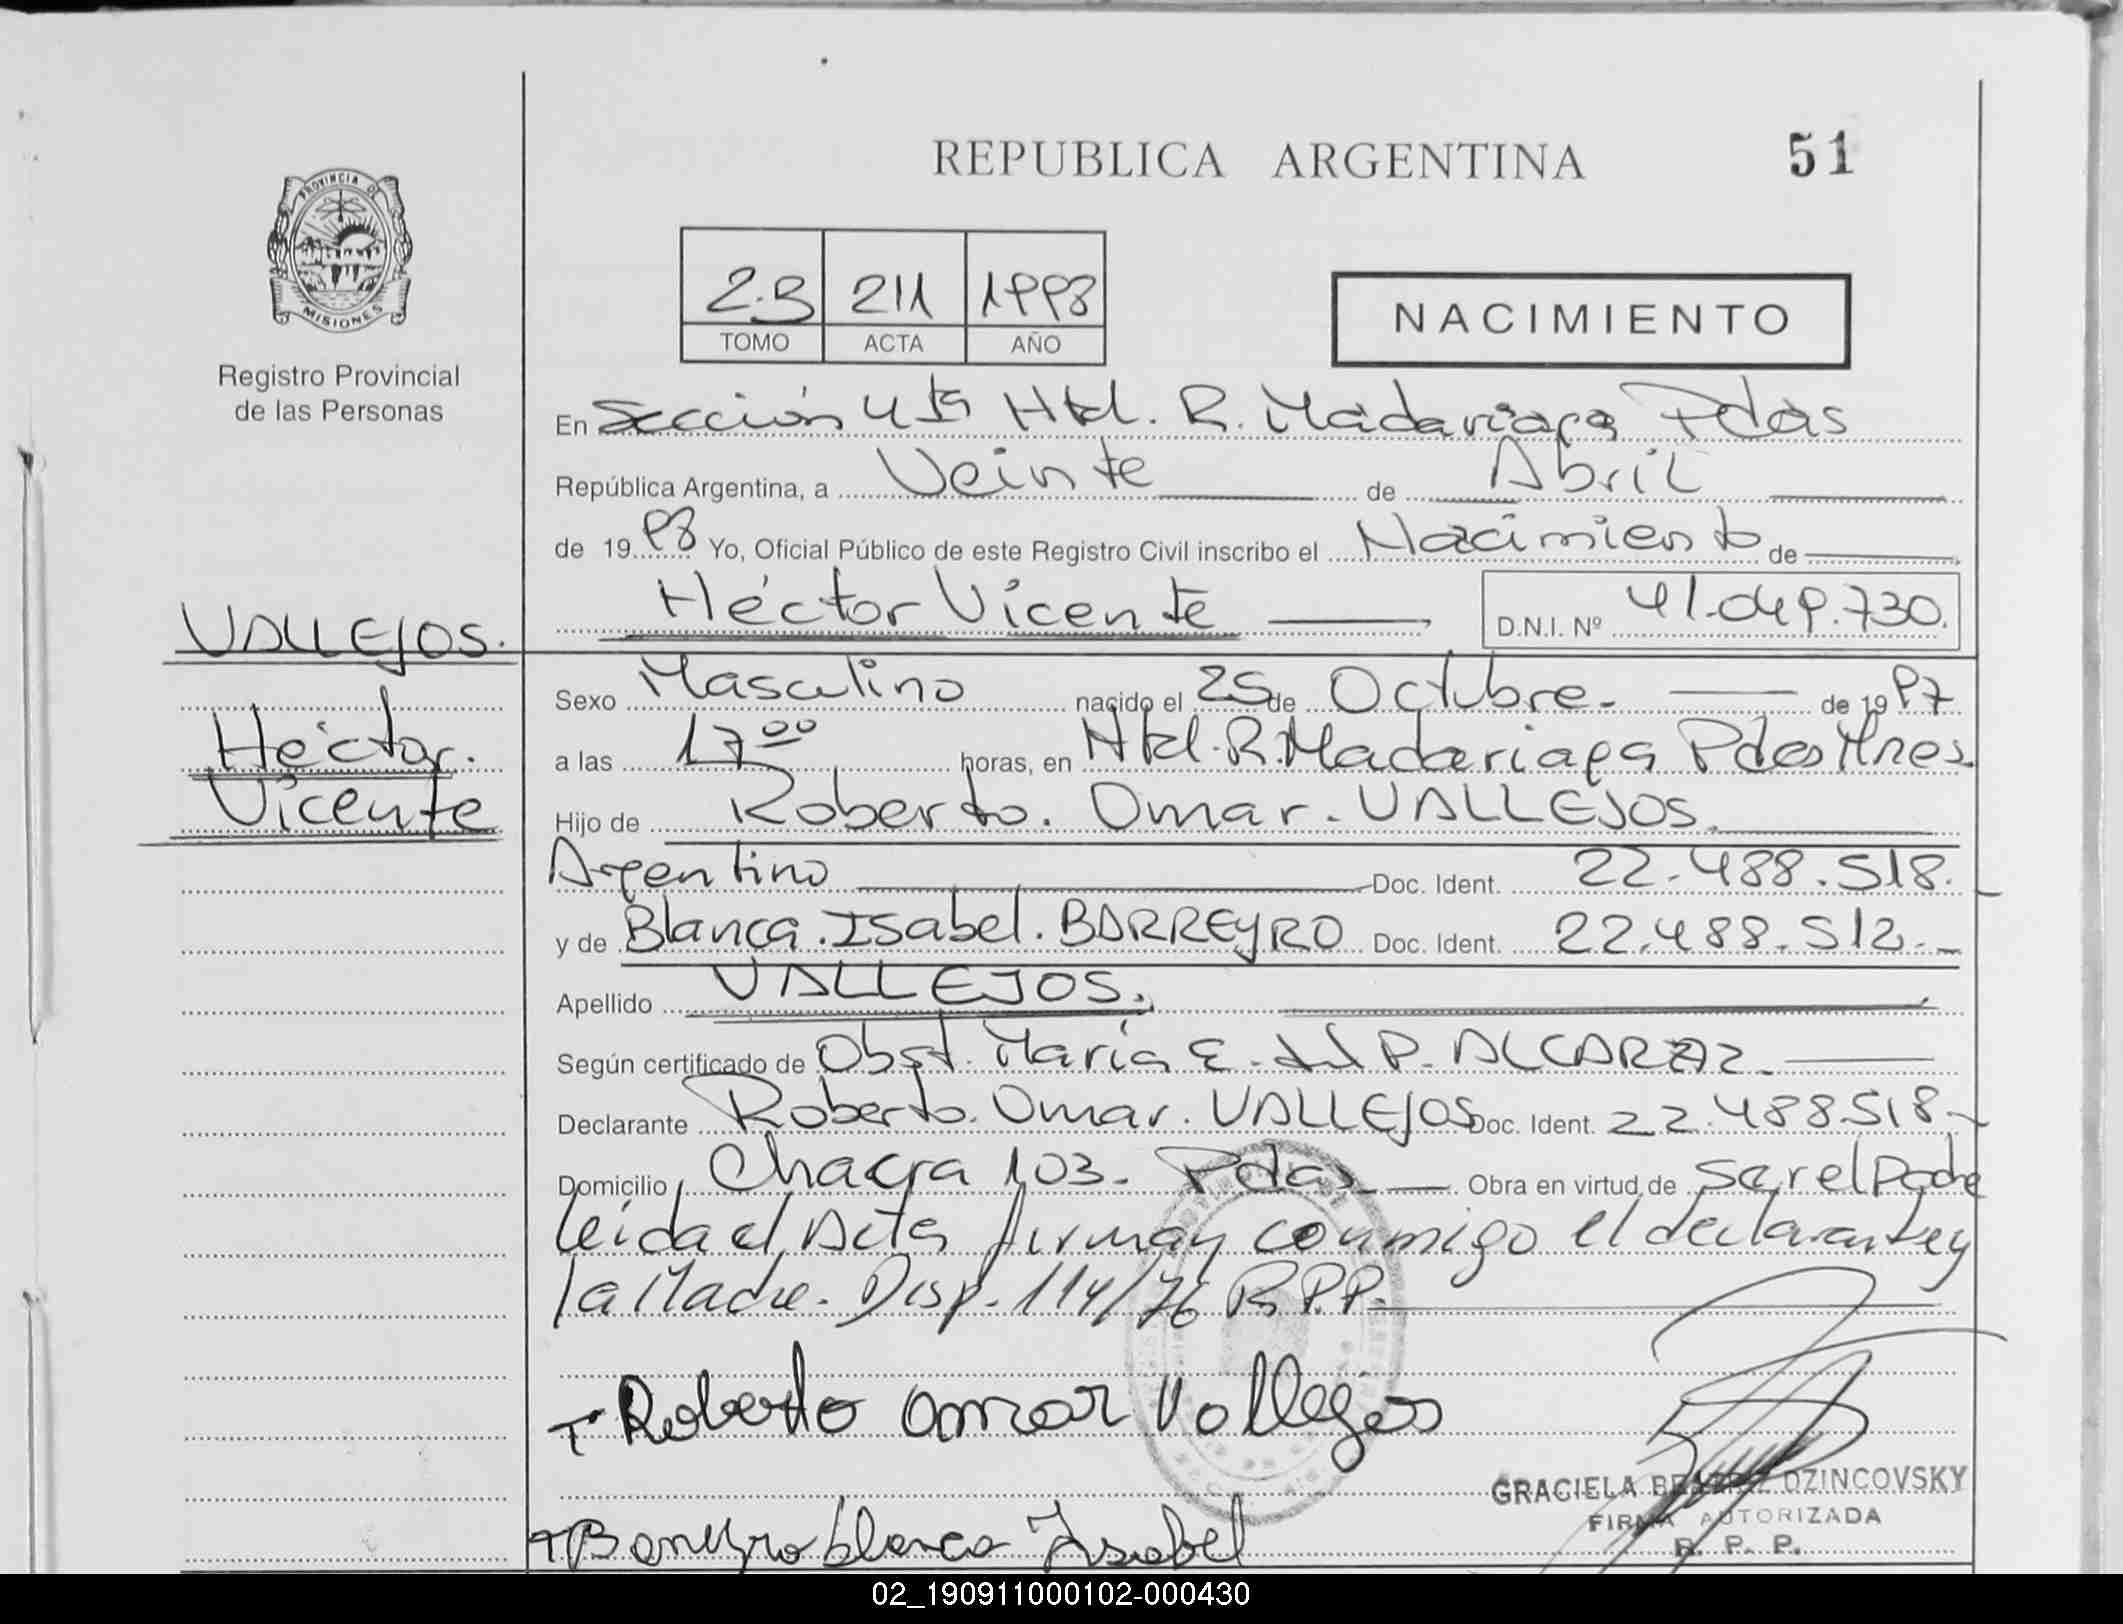 REPUBLICA ARGENTINA
51
PROVINCIA DE
MISIONES
Registro Provincial
de las Personas
2.B 211 1998
TOMO ACTA AÑO
NACIMIENTO
En Sección 4ta Htal. R. Madariaga Pdas
República Argentina, a Veinte de Abril
de 1998 Yo, Oficial Público de este Registro Civil inscribo el Nacimiento de
Héctor Vicente D.N.I. Nº 41.049.730.
VALLEJOS.
Héctor.
Vicente
Sexo Masculino nacido el 25 de Octubre. de 1997
a las 17 00 horas, en Htal. R. Madariaga Pdas Mnes
Hijo de Roberto. Omar. VALLEJOS.
Argentino Doc. Ident. 22.488.518.
y de Blanca. Isabel. BARREYRO Doc. Ident. 22.488.512.-
Apellido VALLEJOS.
Según certificado de Obst. María E. del P. ALCARAZ
Declarante Roberto. Omar. VALLEJOS Doc. Ident. 22.488518-
Domicilio Chacra 103. Pdas Obra en virtud de ser el Padre
leida el Acta firman conmigo el declarante y
la Madre. Disp. 114/76 R.P.P.
Roberto omar Vallejos
GRACIELA BEATRIZ DZINCOVSKY
FIRMA AUTORIZADA
R. P. P.
Barreyro blanca Isabel
02_190911000102-000430